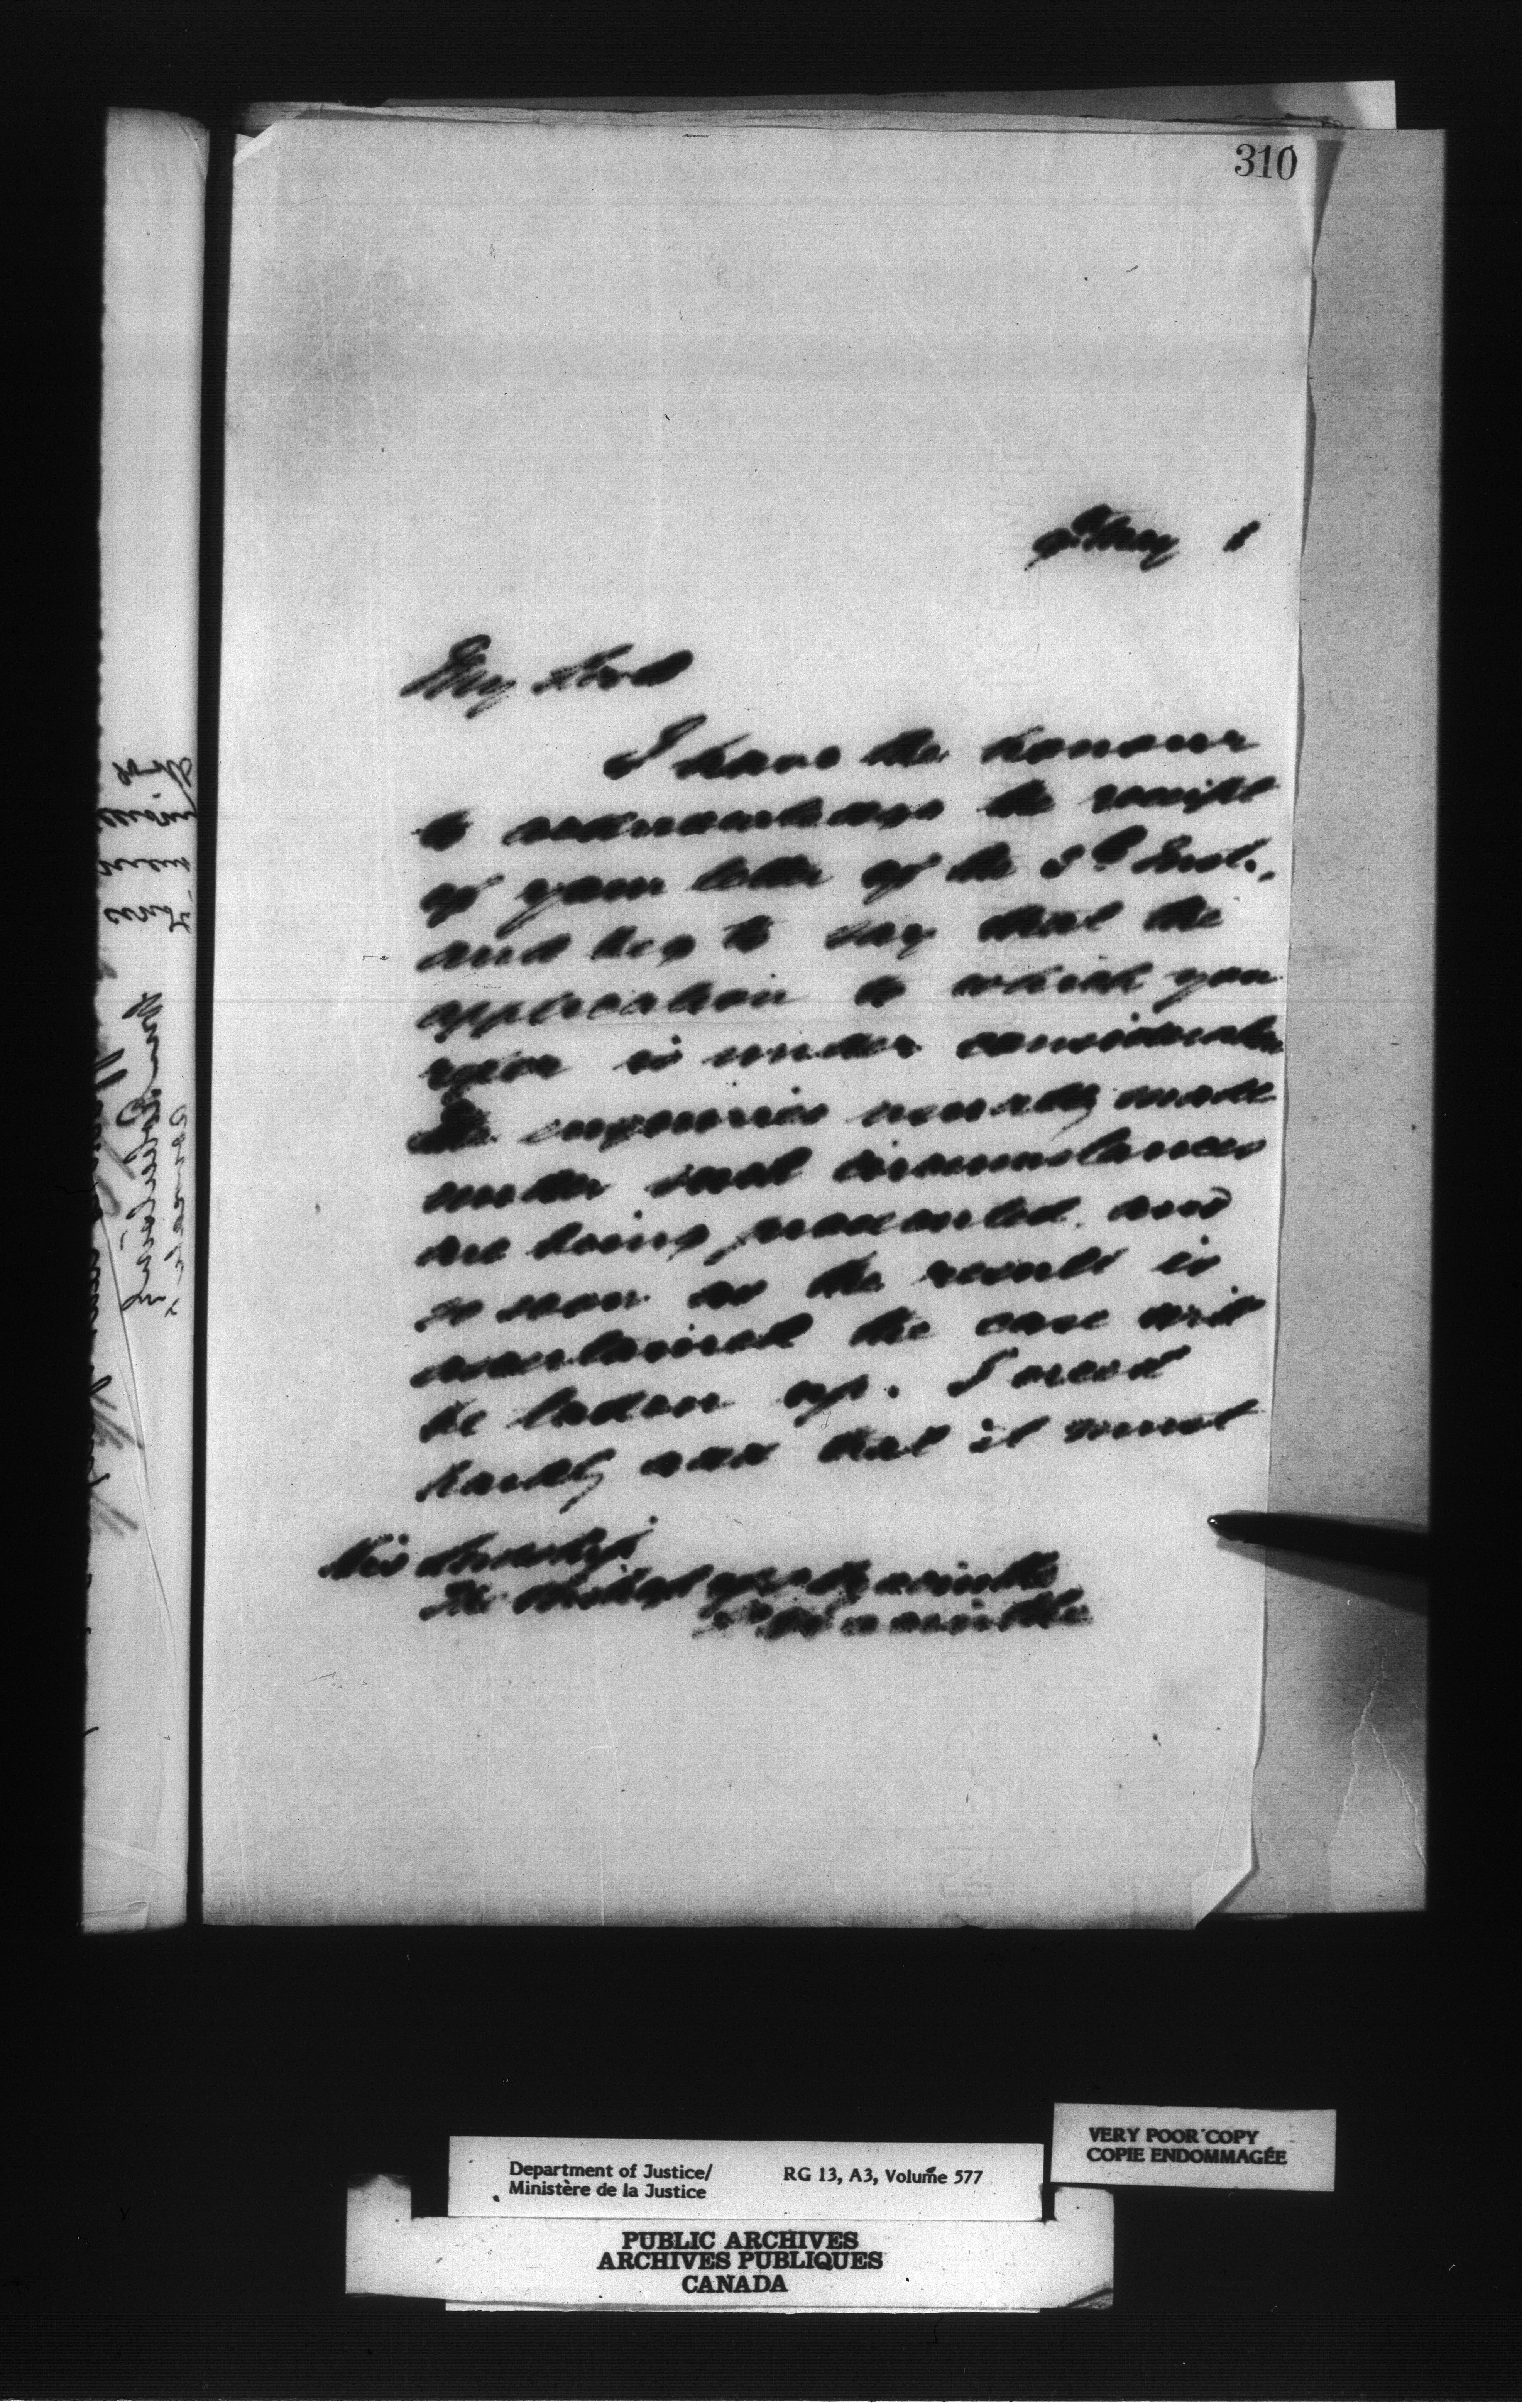 310
May 1
My Lord
I have the honour
to acknowledge the receipt
of your letter of the 3rd Inst.,
and beg to say that the
application to which you
refer is under consideration
The enquiries usually made
under such circumstances
are being prosecuted, and
so soon as the result is
ascertained the case will
be taken up. I need
hardly add that it must
His Lordship
The Bishop of
VERY POOR COPY
COPIE ENDOMMAGÉE
Department of Justice/
Ministère de la Justice
RG 13, A3, Volume 577
PUBLIC ARCHIVES
ARCHIVES PUBLIQUES
CANADA